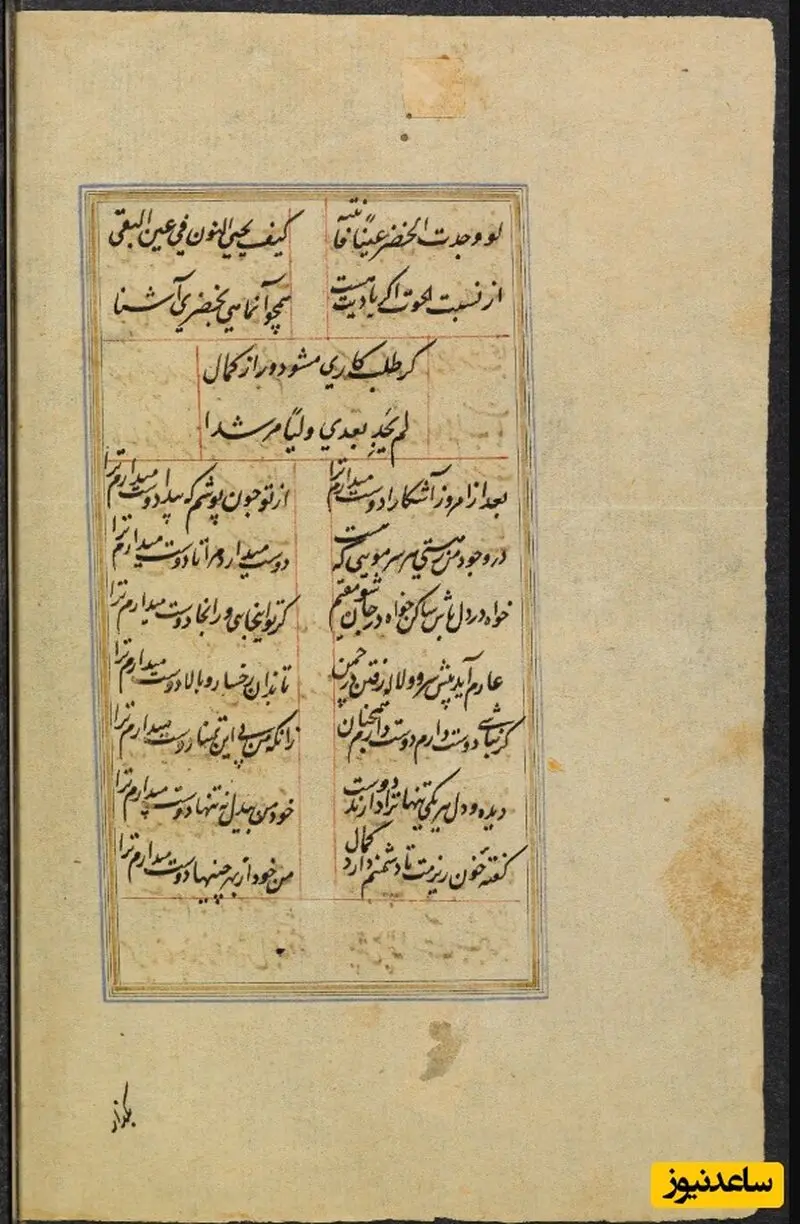 لو وجدت الخضر عینًا فاتبه کیف یحیی النون فی عین البقی
از نسبت الحوت اگر یادیت هست همچو آن ماهی بخضری آشنا
گر طلب کاری مشو دور از کمال
لم یجد بعدی ولیًا مرشدا
بعد ازامروز آشکارا دوست میدارم ترا از تو چون پوشم که پیدا دوست میدارم ترا
در وجود من ز هستی هر سر مویی که هست دوست میدارد مرا تا دوست میدارم ترا
خواه در دل باش ساکن خواه در جان شو مقیم گر تو اینجایی ور آنجا دوست میدارم ترا
عارم آید پیش سرو و لاله رفتن در چمن تا بدان رخسار و بالا دوست میدارم ترا
گر نباشی دوست دارم دوست دارم همچنان زانکه من بی این تمنا دوست میدارم ترا
دیده و دل هر یکی تنها ترا دارند دوست خود من بیدل نه تنها دوست میدارم ترا
گفتهٔ خون ریزمت تا دشمنم دارد کمال من خود از بهر چنینها دوست میدارم ترا
بگداز
ساعدنیوز